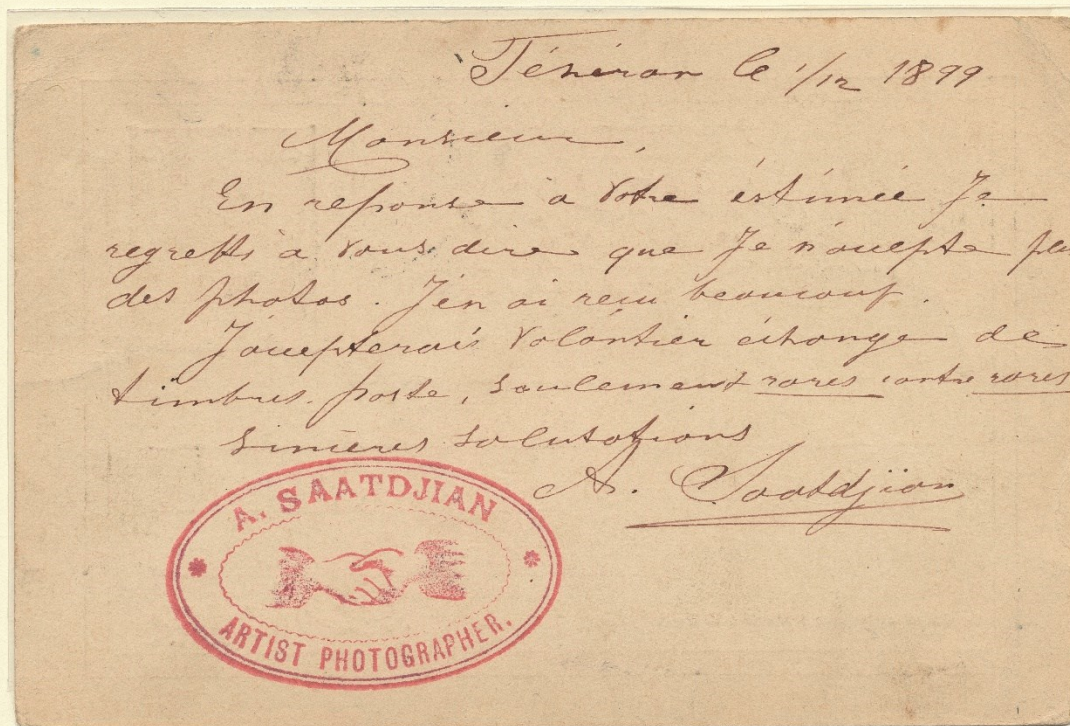 Téhéran le 1/12 1899
Monsieur,
En reponse à Votre éstimée Je
regretts à vous dire que Je n'accepte plus
des photos. J'en ai recu beaucoup.
J'accepterais Volontier échange de
timbres-poste, seulement rares contre rares
Sincères Salutations
A. Saatdjian
A. SAATDJIAN
ARTIST PHOTOGRAPHER.